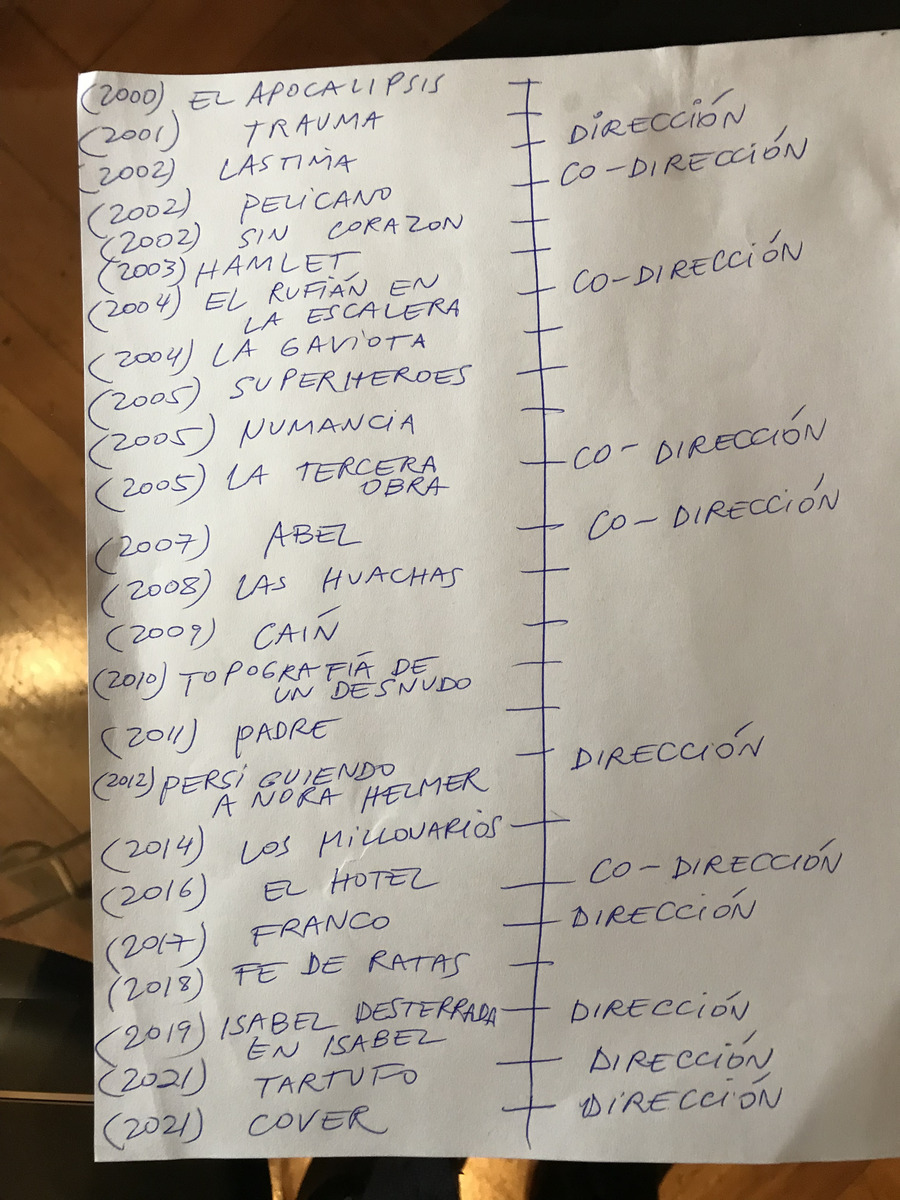 (2000) EL APOCALIPSIS
(2001) TRAUMA DIRECCIÓN
(2002) LASTIMA CO-DIRECCIÓN
(2002) PELICANO
(2002) SIN CORAZON
(2003) HAMLET CO-DIRECCIÓN
(2004) EL RUFIÁN EN
LA ESCALERA
(2004) LA GAVIOTA
(2005) SUPERHEROES
(2005) NUMANCIA
(2005) LA TERCERA CO-DIRECCIÓN
OBRA
(2007) ABEL CO-DIRECCIÓN
(2008) LAS HUACHAS
(2009) CAIŃ
(2010) TOPOGRAFIÁ DE
UN DESNUDO
(2011) PADRE
(2012) PERSIGUIENDO DIRECCIÓN
A NORA HELMER
(2014) LOS MILLONARIOS
(2016) EL HOTEL CO-DIRECCIÓN
(2017) FRANCO DIRECCIÓN
(2018) FE DE RATAS
(2019) ISABEL DESTERRADA DIRECCIÓN
EN ISABEL
(2021) TARTUFO DIRECCIÓN
(2021) COVER DIRECCIÓN